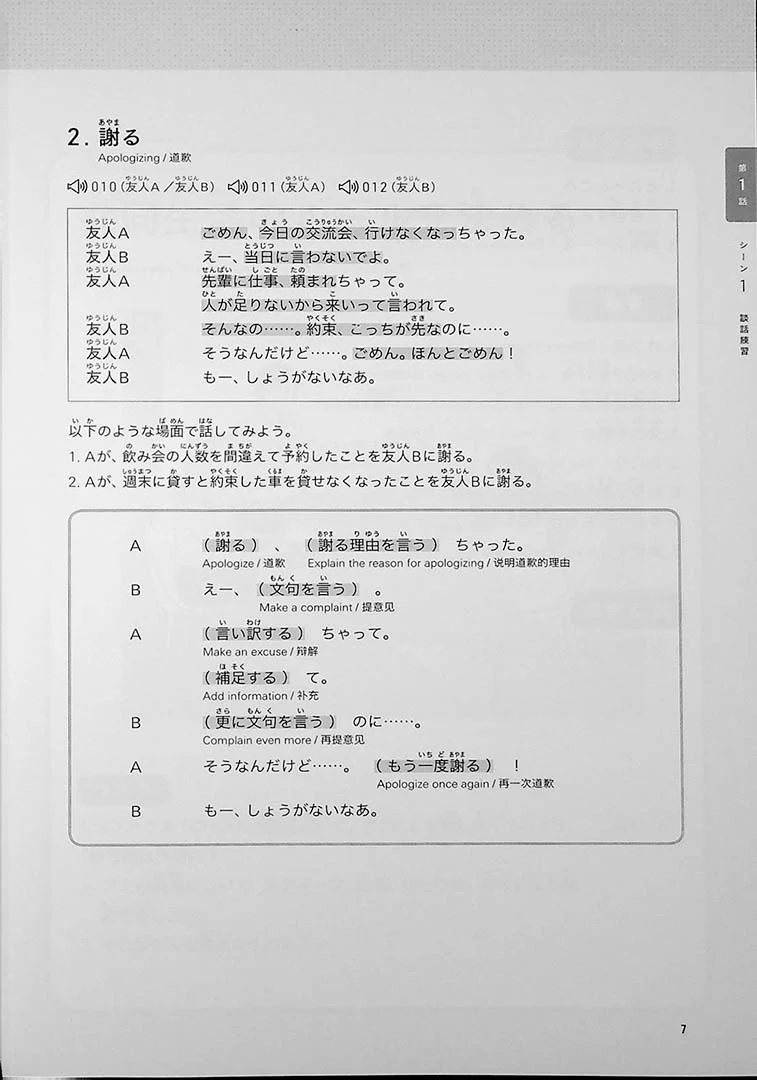 2. 謝る
Apologizing / 道歉
010（友人A／友人B） 011（友人A） 012（友人B）
友人A ごめん、今日の交流会、行けなくなっちゃった。
友人B えー、当日に言わないでよ。
友人A 先輩に仕事、頼まれちゃって。
人が足りないから来いって言われて。
友人B そんなの……。約束、こっちが先なのに……。
友人A そうなんだけど……。ごめん。ほんとごめん！
友人B もー、しょうがないなあ。
以下のような場面で話してみよう。
1. Aが、飲み会の人数を間違えて予約したことを友人Bに謝る。
2. Aが、週末に貸すと約束した車を貸せなくなったことを友人Bに謝る。
A （謝る）、（謝る理由を言う）ちゃった。
Apologize / 道歉 Explain the reason for apologizing / 说明道歉的理由
B えー、（文句を言う）。
Make a complaint / 提意见
A （言い訳する）ちゃって。
Make an excuse / 辩解
（補足する）て。
Add information / 补充
B （更に文句を言う）のに……。
Complain even more / 再提意见
A そうなんだけど……。（もう一度謝る）！
Apologize once again / 再一次道歉
B もー、しょうがないなあ。
第1話
シーン1
談話練習
7